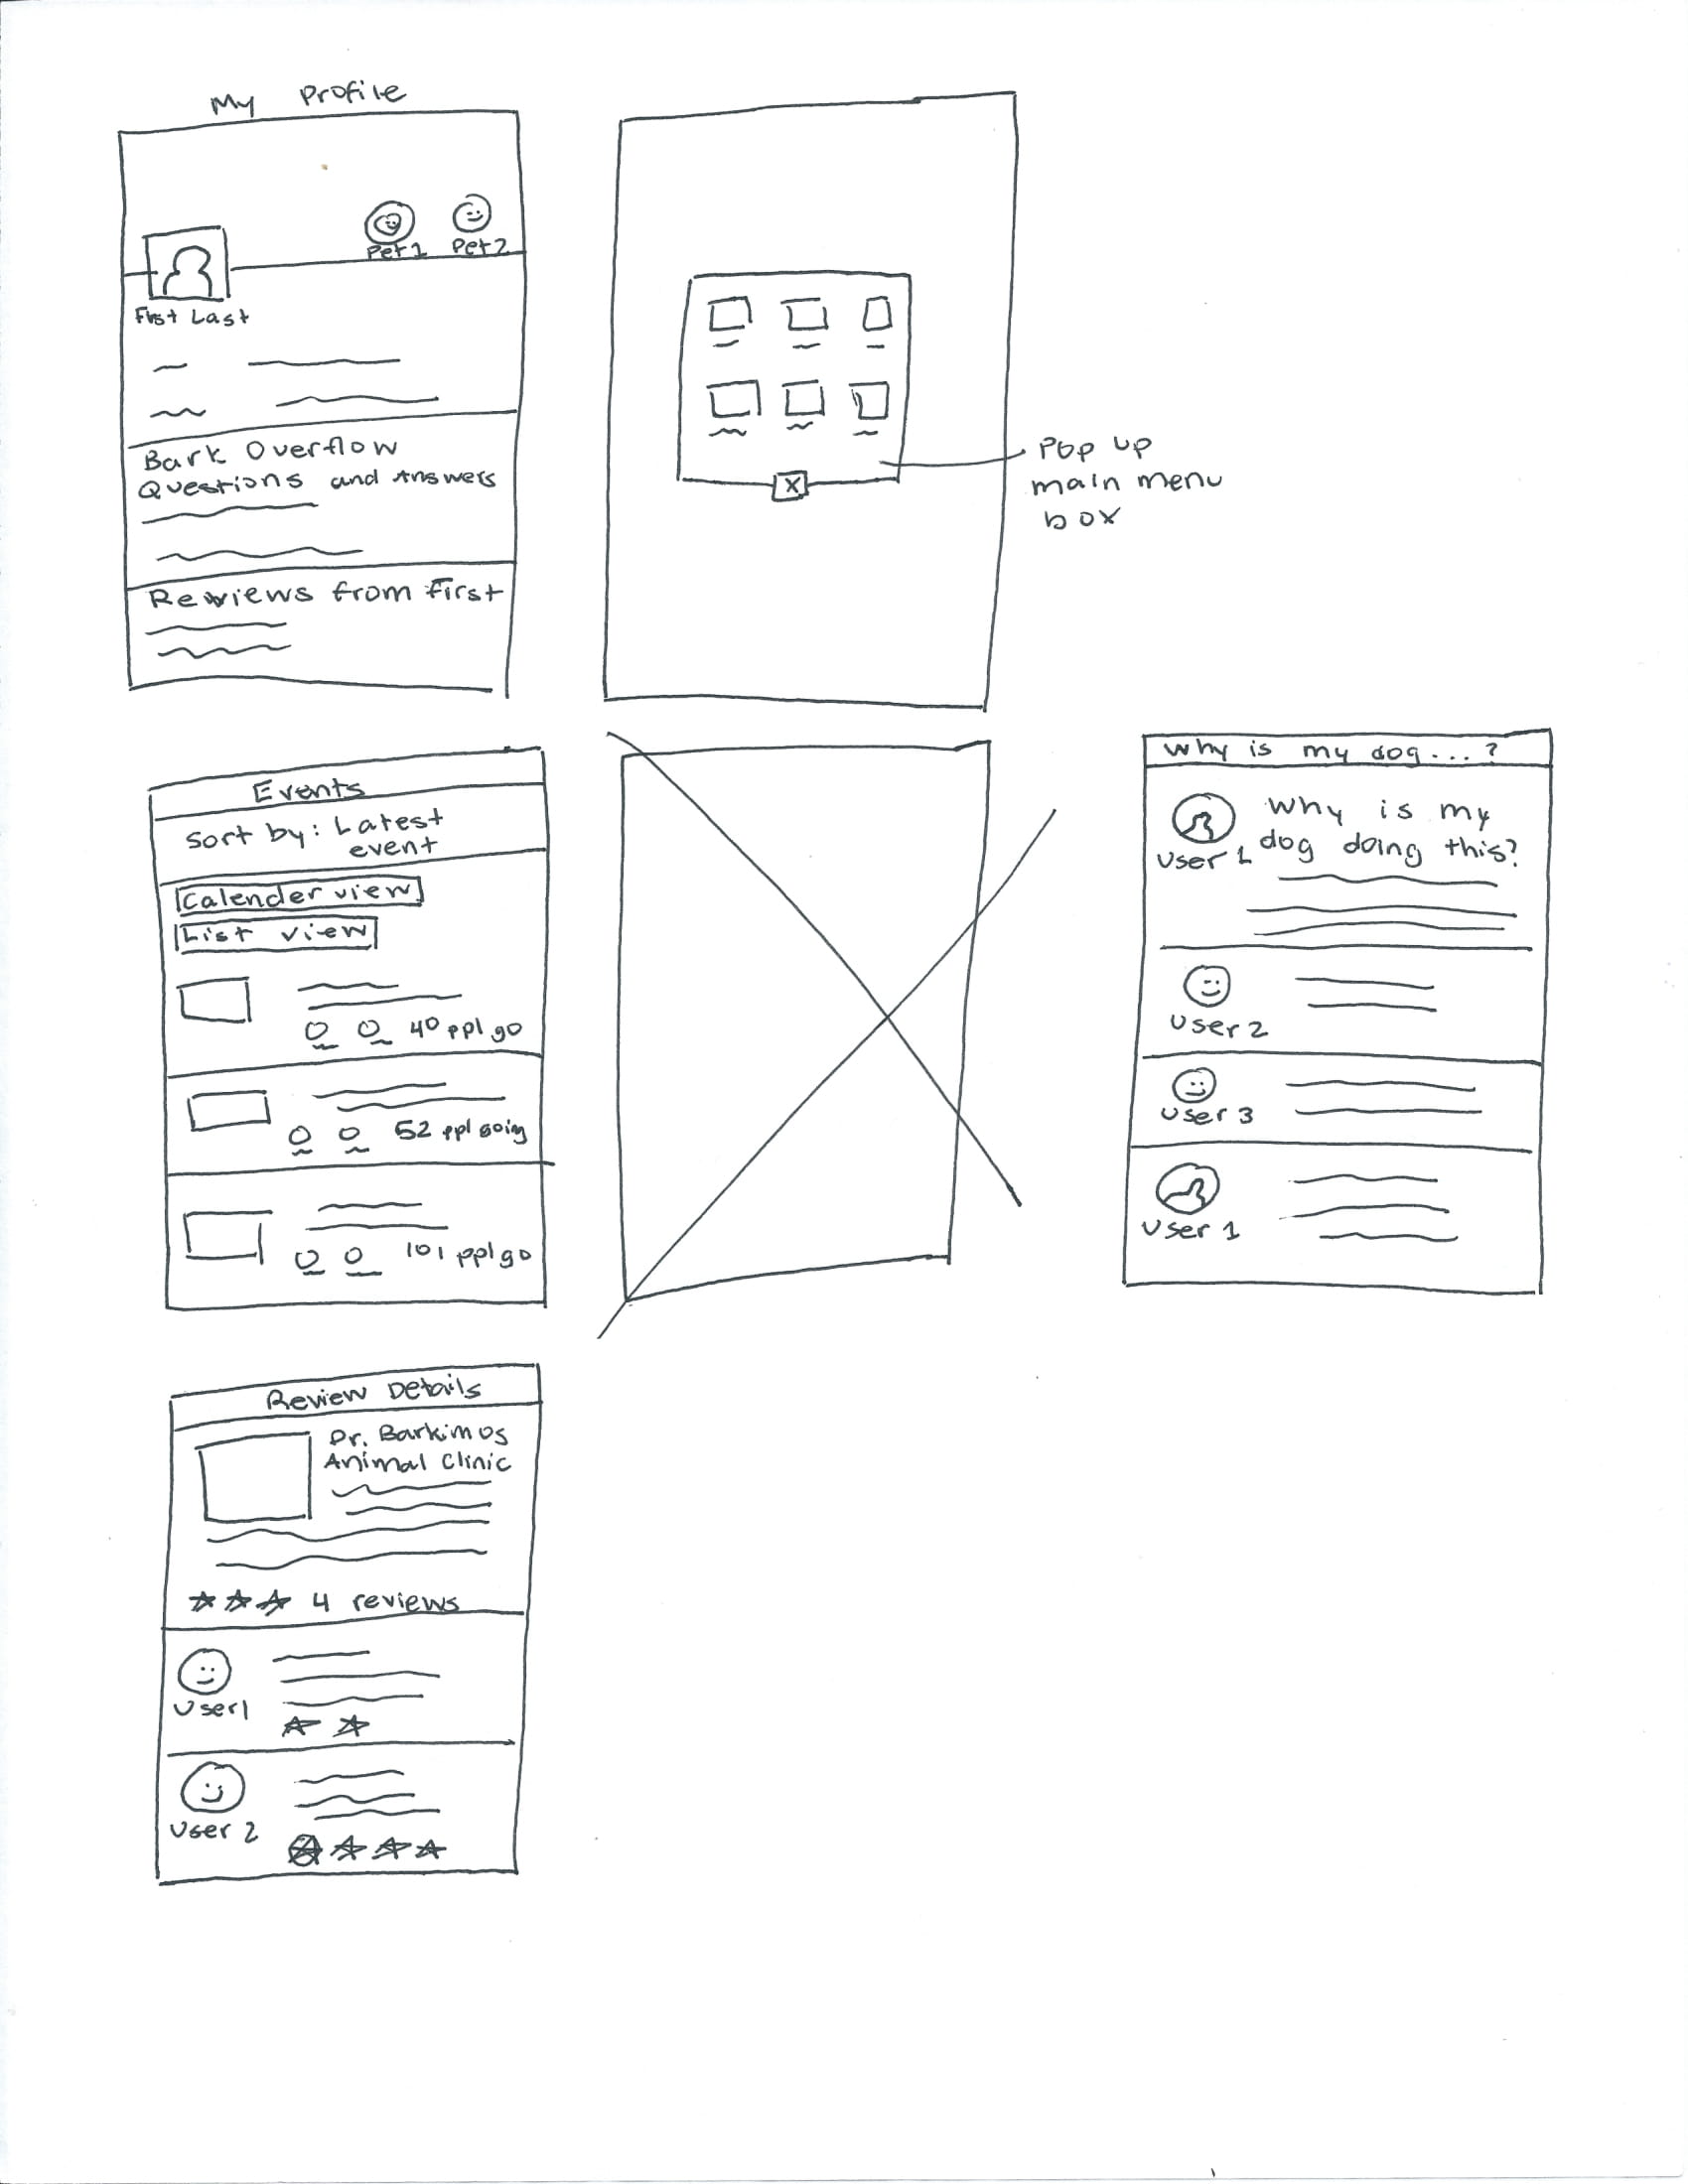 My Profile
Pet 1 Pet 2
First Last
Bark Overflow
Questions and Answers
Reviews from First
X
Pop up
main menu
box
Events
Sort by: Latest
event
Calender view
List view
40 ppl go
52 ppl going
101 ppl go
Why is my dog...?
Why is my
dog doing this?
User 1
User 2
User 3
User 1
Review Details
Dr. Barkimos
Animal Clinic
4 reviews
User 1
User 2